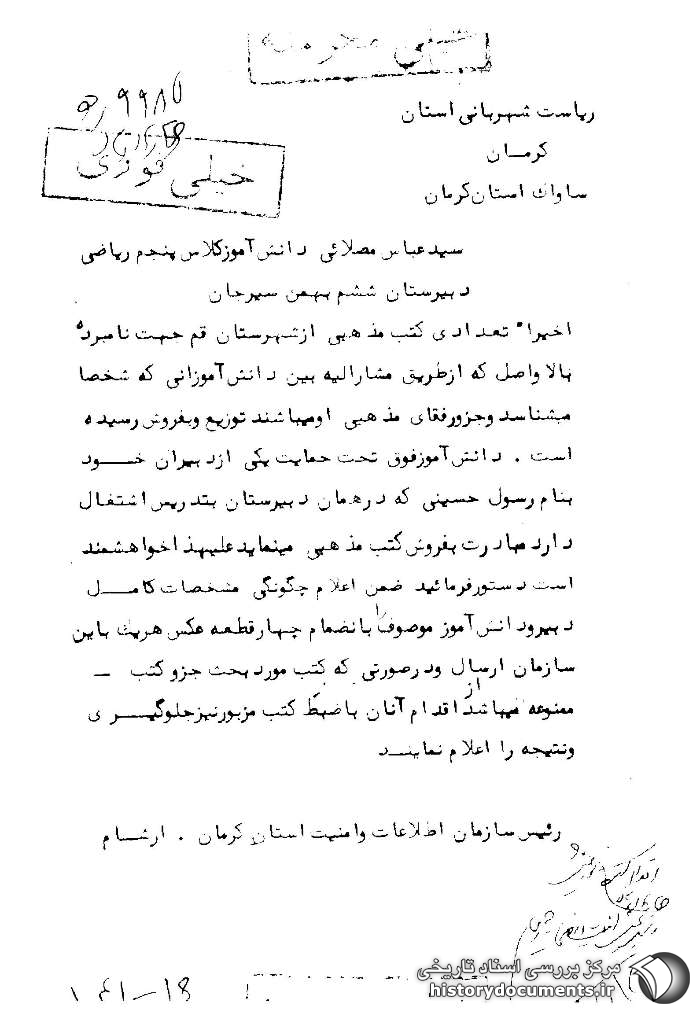 خیلی محرمانه
۹۹۸۵/ه
خیلی فوری
ریاست شهربانی استان
کرمـان
ساواك استان کرمان
سیدعباس مصلائی دانش‌آموزکلاس پنجم ریاضی
دبیرستان ششم بهمن سیرجان
اخیراً تعدادی کتب مذهبی ازشهرستان قم جهت نامبرده
بالا واصل که ازطریق مشارالیه بین دانش‌آموزانی که شخصا
میشناسد وجزورفقای مذهبی اومیباشند توزیع وبفروش رسیده
است . دانش‌آموزفوق تحت حمایت یکی ازدبیران خـــود
بنام رسول حسینی که درهمان دبیرستان بتدریس اشتغال
دارد مبادرت بفروش کتب مذهبی مینماید علیهذا خواهشمند
است دستورفرمائید ضمن اعلام چگونگی مشخصات کامــل
دبیرودانش‌آموز موصوف را بانضمام چهارقطعه عکس هریك باین
سازمان ارسال ودرصورتی که کتب مورد بحث جزو کتب –
ممنوعه میباشد از اقدام آنان باضبط کتب مزبورنیزجلوگیــری
ونتیجه را اعلام نماینـــد
رئیس سازمان اطلاعات وامنیت استان کرمان . ارشــام
مرکز بررسی اسناد تاریخی
historydocuments.ir